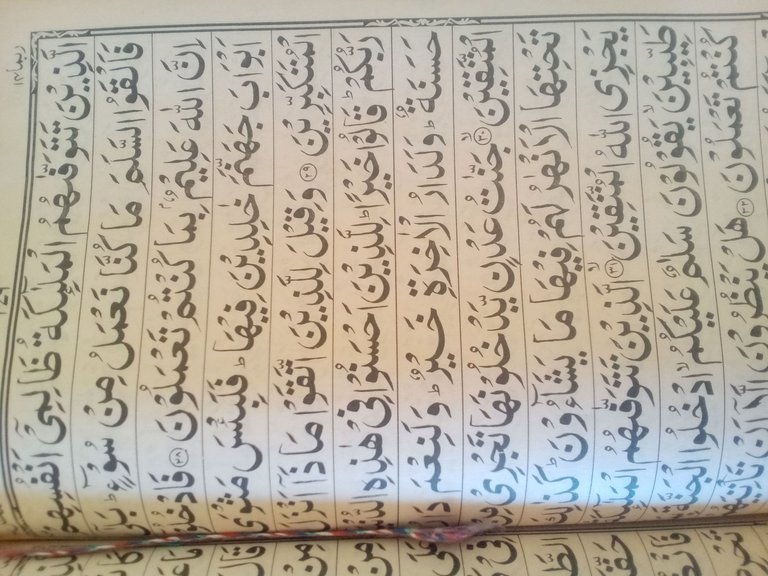 الَّذِيْنَ تَتَوَفّٰىهُمُ الْمَلٰٓئِكَةُ ظَالِمِيْٓ اَنْفُسِهِمْ
فَاَلْقَوُا السَّلَمَ مَا كُنَّا نَعْمَلُ مِنْ سُوْٓءٍ ؕ بَلٰٓى
اِنَّ اللّٰهَ عَلِيْمٌۢ بِمَا كُنْتُمْ تَعْمَلُوْنَ ﴿۲۸﴾ فَادْخُلُوْٓا
اَبْوَابَ جَهَنَّمَ خٰلِدِيْنَ فِيْهَا ؕ فَلَبِئْسَ مَثْوَى
الْمُتَكَبِّرِيْنَ ﴿۲۹﴾ وَقِيْلَ لِلَّذِيْنَ اتَّقَوْا مَاذَاۤ اَنْزَلَ
رَبُّكُمْ ؕ قَالُوْا خَيْرًا ؕ لِلَّذِيْنَ اَحْسَنُوْا فِيْ هٰذِهِ الدُّنْيَا
حَسَنَةٌ ؕ وَلَدَارُ الْاٰخِرَةِ خَيْرٌ ؕ وَلَنِعْمَ دَارُ
الْمُتَّقِيْنَ ۙ﴿۳۰﴾ جَنّٰتُ عَدْنٍ يَّدْخُلُوْنَهَا تَجْرِيْ مِنْ
تَحْتِهَا الْاَنْهٰرُ لَهُمْ فِيْهَا مَا يَشَآءُوْنَ ؕ كَذٰلِكَ
يَجْزِي اللّٰهُ الْمُتَّقِيْنَ ۙ﴿۳۱﴾ الَّذِيْنَ تَتَوَفّٰىهُمُ الْمَلٰٓئِكَةُ
طَيِّبِيْنَ ۙ يَقُوْلُوْنَ سَلٰمٌ عَلَيْكُمُ ۙ ادْخُلُوا الْجَنَّةَ
كُنْتُمْ تَعْمَلُوْنَ ﴿۳۲﴾ هَلْ يَنْظُرُوْنَ اِلَّاۤ اَنْ تَاْتِيَهُمُ